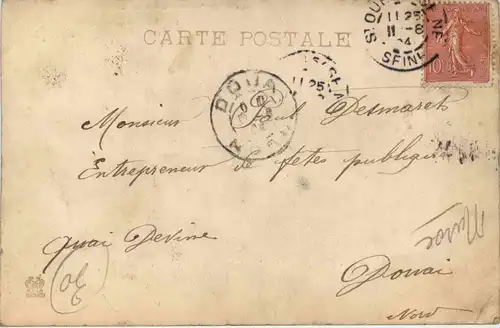 CARTE POSTALE
ST OUEN
11 25
SEINE
10
DOUAI
Monsieur Paul Desmarets
Entrepreneur de fêtes publiques
Quai Devine
Douai
Nord